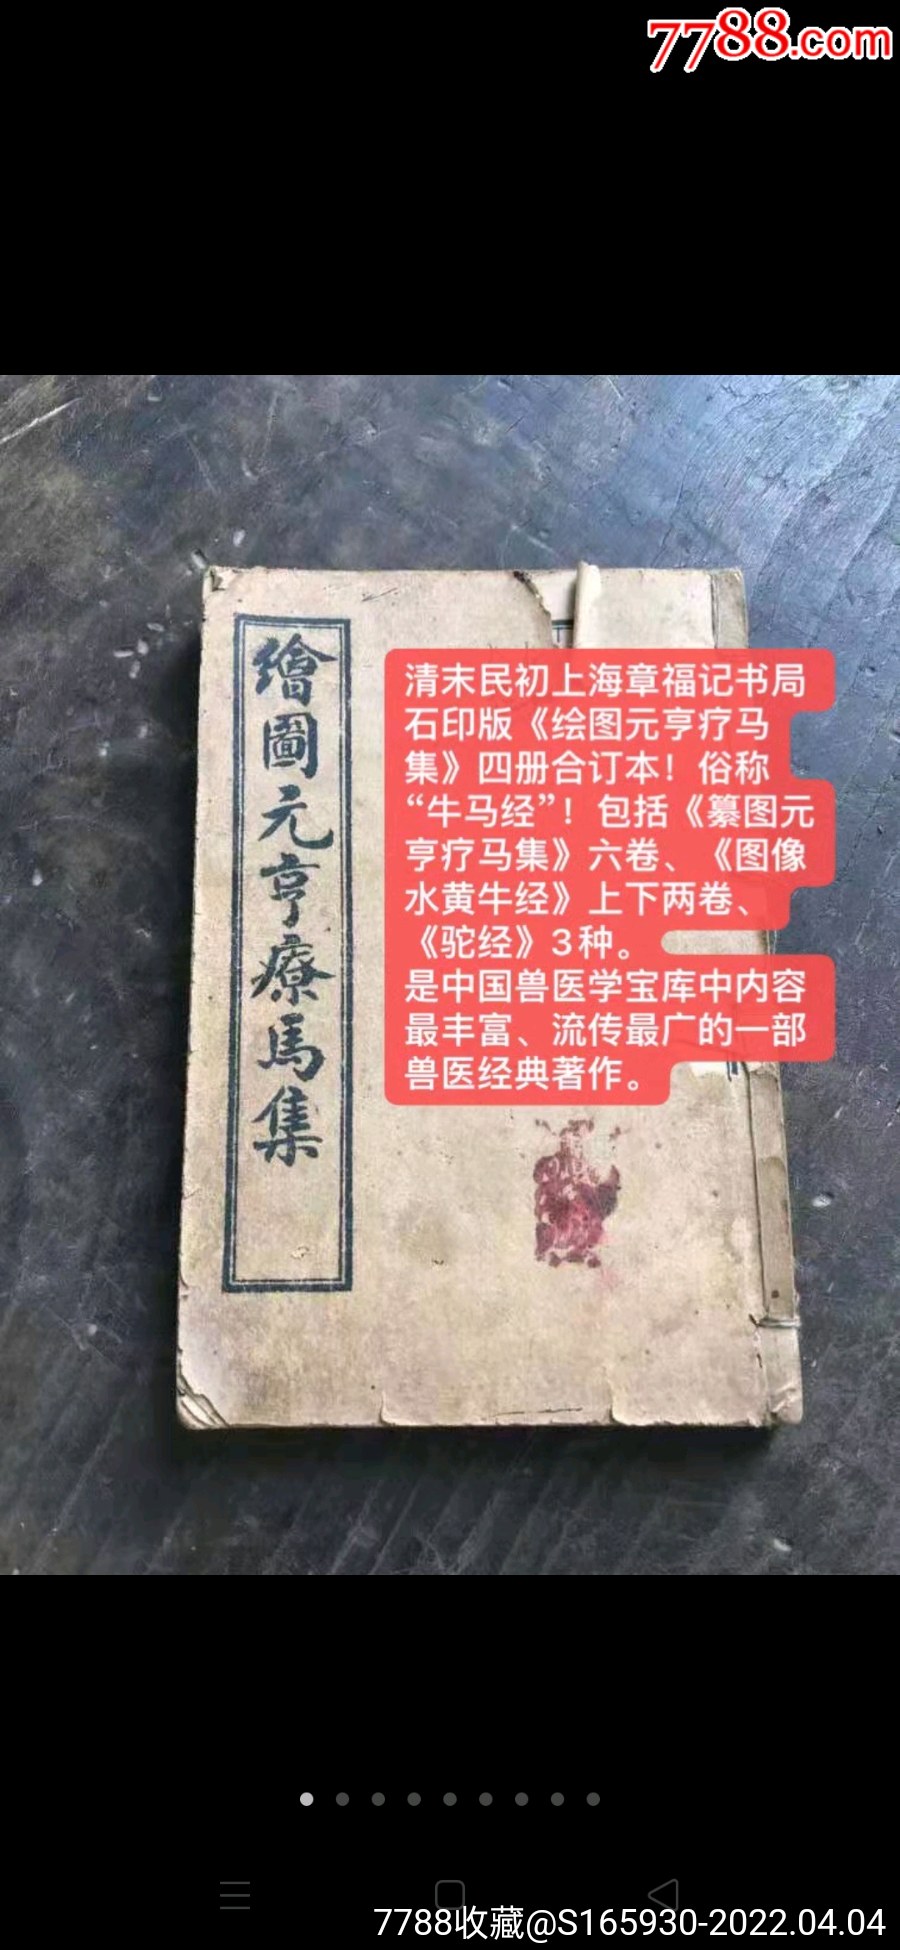 7788.com
繪圖元亨療馬集
清末民初上海章福记书局
石印版《绘图元亨疗马
集》四册合订本！俗称
“牛马经”！包括《纂图元
亨疗马集》六卷、《图像
水黄牛经》上下两卷、
《驼经》3种。
是中国兽医学宝库中内容
最丰富、流传最广的一部
兽医经典著作。
7788收藏@S165930-2022.04.04